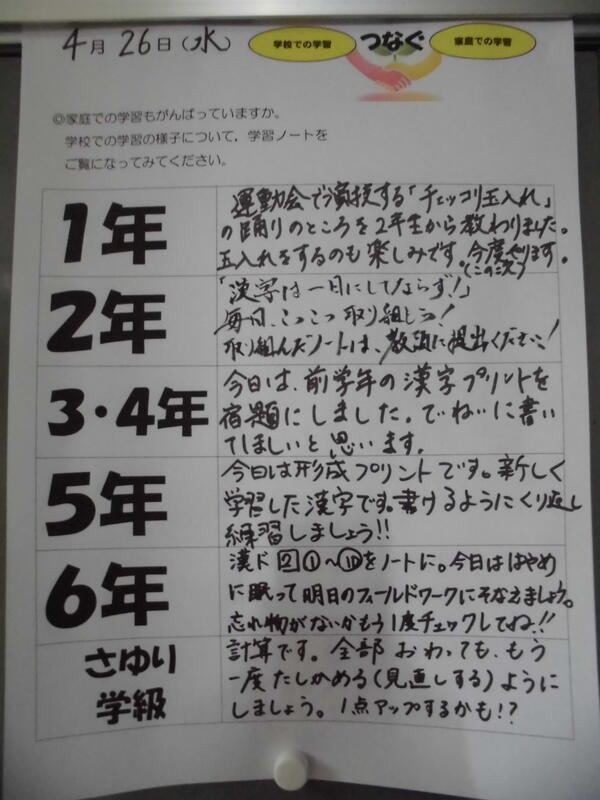 4月26日(水)
学校での学習 つなぐ 家庭での学習
◎家庭での学習もがんばっていますか。
学校での学習の様子について，学習ノートを
ご覧になってみてください。
1年
運動会で演技する「チェッコリ玉入れ」
の踊りのところを2年生から教わりました。
玉入れをするのも楽しみです。今度やります。
(この次)
2年
「漢字は一日にしてならず!」
毎日、こつこつ取り組もう!
取り組んだノートは、教頭に提出ください!
3・4年
今日は、前学年の漢字プリントを
宿題にしました。ていねいに書い
てほしいと思います。
5年
今日は形成プリントです。新しく
学習した漢字です。書けるようにくり返し
練習しましょう!!
6年
漢ド 2 ①〜⑩をノートに。今日ははやめ
に眠って明日のフィールドワークにそなえましょう。
忘れ物がないかもう1度チェックしてね!!
さゆり
学級
計算です。全部おわっても、もう
一度たしかめる(見直しする)ように
しましょう。1点アップするかも!?